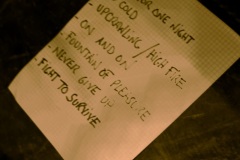 FOR ONE NIGHT
- COLD
- UPCRAWLING / HIGH FIRE
- ON AND ON
- FOUNTAIN OF PLEASURE
- NEVER GIVE UP
- FIGHT TO SURVIVE